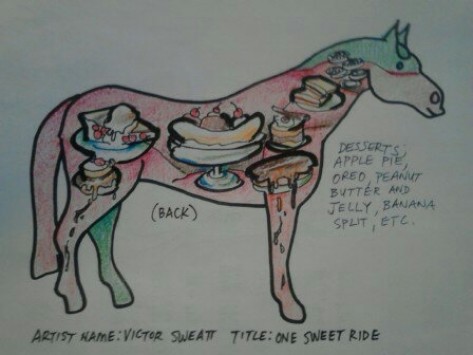 DESSERTS;
APPLE PIE,
OREO, PEANUT
BUTTER AND
JELLY, BANANA
SPLIT, ETC.
(BACK)
ARTIST NAME: VICTOR SWEATT TITLE: ONE SWEET RIDE